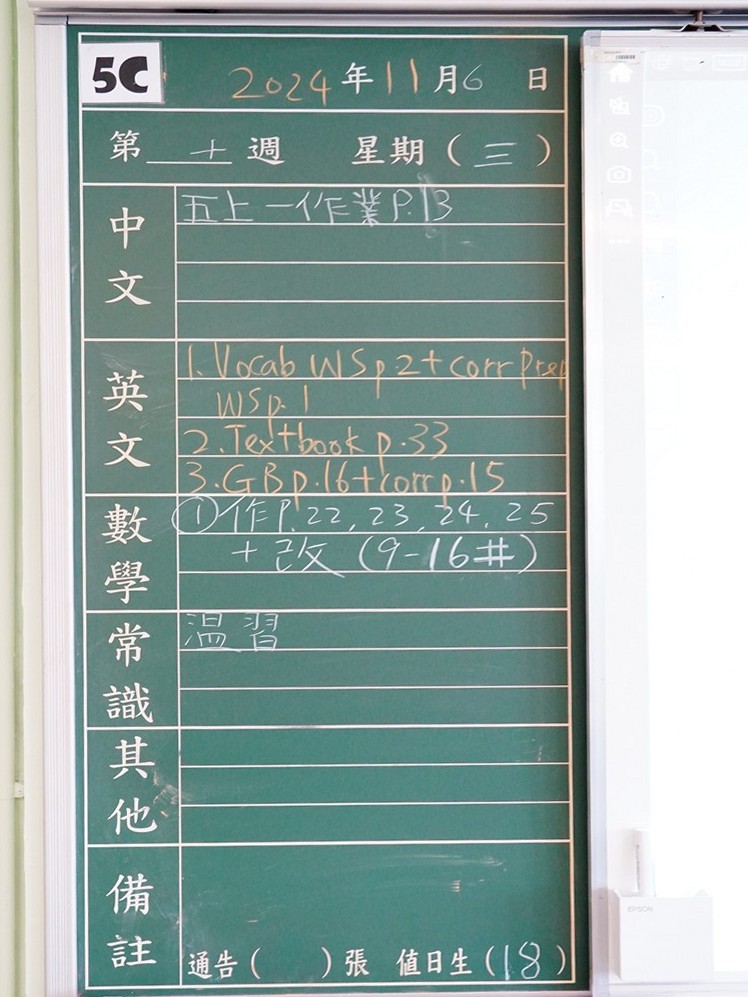 5C
2024年11月6日
第 十 週 星期（三）
中文
五上一作業P.13
英文
1. Vocab WS p.2 + corr Prep
WS p.1
2. Textbook p.33
3. GB p.16 + corr p.15
數學
① 作P.22, 23, 24, 25
+ 改 (9-16#)
常識
溫習
其他
備註
通告（ ）張 值日生（18）
EPSON